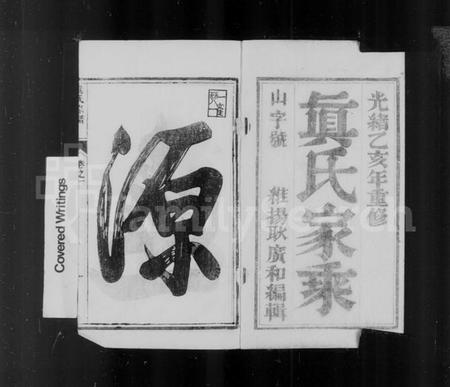 光緒乙亥年重修
眞氏家乘
山字號 維揚耿廣和編輯
源
Covered Writings
FamilySearch